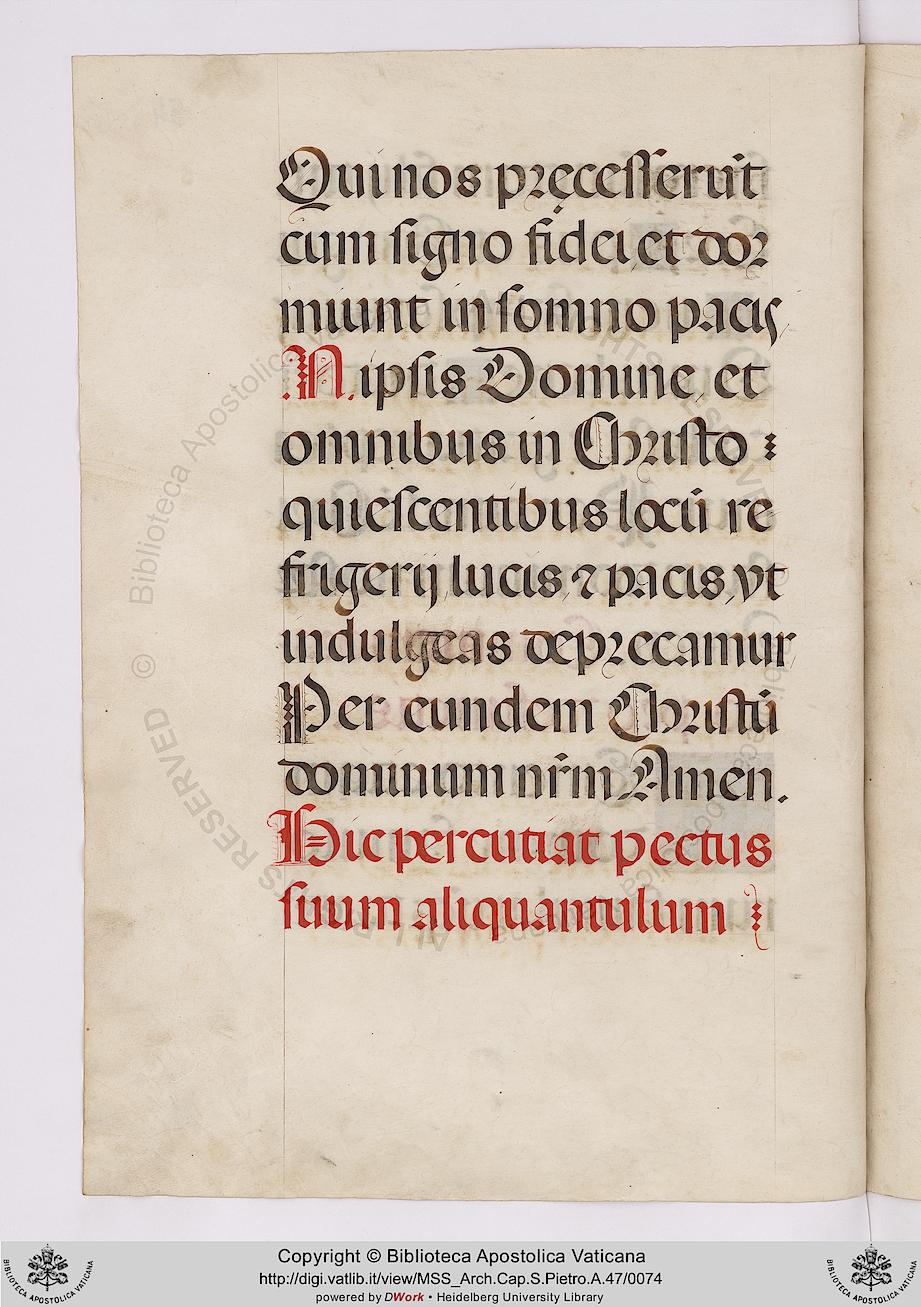 Qui nos pręcesserūt
cum signo fidei, et dor
miunt in somno pacis,
.N. ipsis Domine, et
omnibus in Christo
quiescentibus locū re
frigerij, lucis, ⁊ pacis, vt
indulgeas deprecamur,
Per eundem Christū
dominum nr̄m Amen.
Hic percutiat pectus
suum aliquantulum
© Biblioteca Apostolica
ALL RIGHTS RESERVED
Copyright © Biblioteca Apostolica Vaticana
http://digi.vatlib.it/view/MSS_Arch.Cap.S.Pietro.A.47/0074
powered by DWork • Heidelberg University Library
BIBLIOTECA APOSTOLICA VATICANA
BIBLIOTECA APOSTOLICA VATICANA